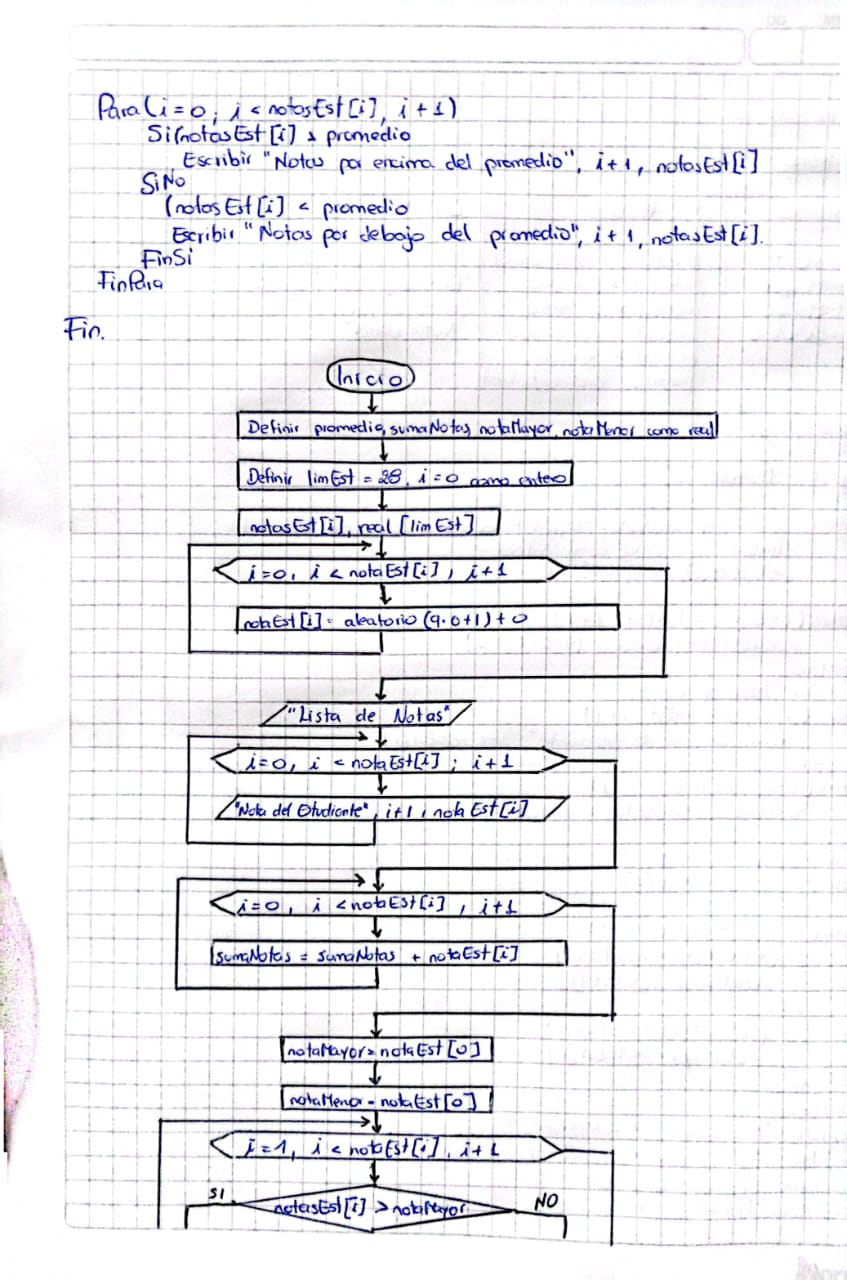 Para (i=0; i < notasEst[i], i+1)
Si(notasEst[i] > promedio
Escribir "Notas por encima del promedio", i+1, notasEst[i]
SiNo
(notasEst[i] < promedio
Escribir "Notas por debajo del promedio", i+1, notasEst[i].
FinSi
FinPara
Fin.
Inicio
Definir promedio, sumaNotas, notaMayor, notaMenor como real
Definir limEst = 28, i=0 como entero
notasEst[i], real [limEst]
i=0, i < notaEst[i], i+1
notaEst[i] = aleatorio (9.0+1)+0
"Lista de Notas"
i=0, i < notaEst[i]; i+1
"Nota del Estudiante", i+1, notaEst[i]
i=0, i < notaEst[i], i+1
sumaNotas = sumaNotas + notaEst[i]
notaMayor = notaEst[0]
notaMenor = notaEst[0]
i=1, i < notaEst[i], i+1
SI
notasEst[i] > notaMayor
NO